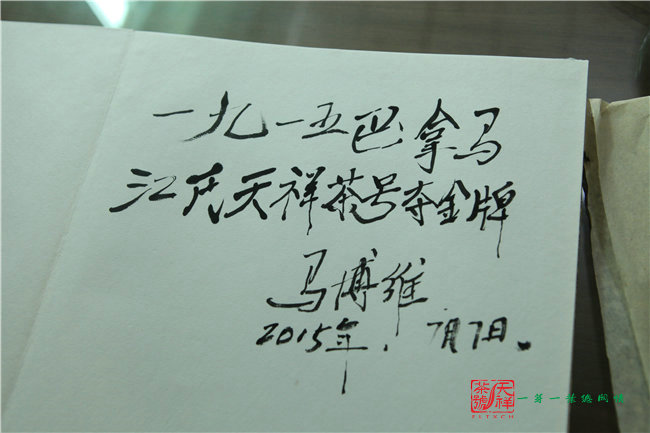 一九一五巴拿马
江氏天祥茶号夺金牌
马博维
2015年.7月7日.
天祥
茶號
FLTXCH
一芽一葉總関情